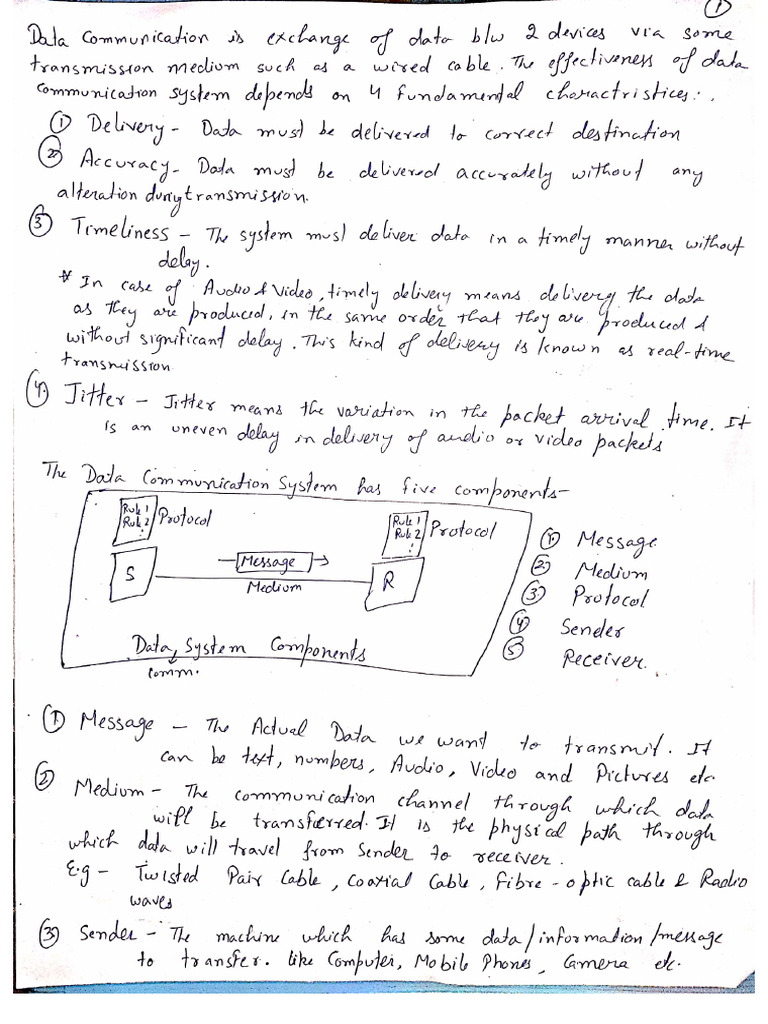 ①
Data Communication is exchange of data b/w 2 devices via some
transmission medium such as a wired cable. The effectiveness of data
communication system depends on 4 fundamental charactristices:.
① Delivery - Data must be delivered to correct destination
② Accuracy - Data must be delivered accurately without any
alteration during transmission.
③ Timeliness - The system must deliver data in a timely manner without
delay.
* In case of Audio & Video, timely delivery means delivery the data
as they are produced, in the same order that they are produced &
without significant delay. This kind of delivery is known as real-time
transmission
④ Jitter - Jitter means the variation in the packet arrival time. It
is an uneven delay in delivery of audio or video packets
The Data Communication System has five components-
Rule 1
Rule 2
:
Protocol
Rule 1
Rule 2
:
Protocol
S
Message
Medium
R
Data, System Components
comm.
① Message
② Medium
③ Protocol
④ Sender
⑤ Receiver.
① Message - The Actual Data we want to transmit. It
can be text, numbers, Audio, Video and Pictures etc
② Medium - The communication channel through which data
will be transferred. It is the physical path through
which data will travel from sender to receiver.
E.g - Twisted Pair Cable, Coaxial Cable, Fibre-optic cable & Radio
waves
③ Sender - The machine which has some data/information/message
to transfer. like Computer, Mobile Phones, Camera etc.